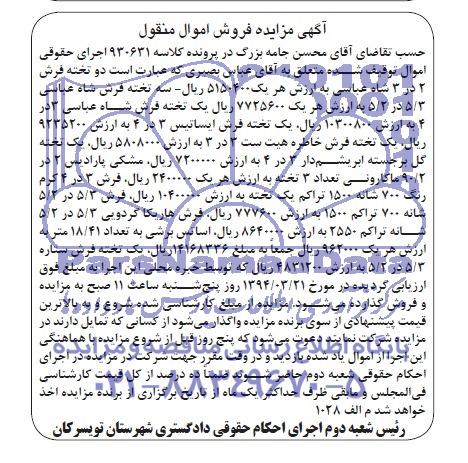 آگهی مزایده فروش اموال منقول
حسب تقاضای آقای محسن جامه بزرگ در پرونده کلاسه ۹۳۰۶۳۱ اجرای حقوقی
اموال توقیف شده متعلق به آقای عباس بصیری که عبارت است دو تخته فرش
۲ در ۳ شاه عباسی به ارزش هر یک ۵۱۵۰۴۰۰ ریال- سه تخته فرش شاه عباسی
۳/۵ در ۲/۵ به ارزش هر یک ۷۷۲۵۶۰۰ ریال یک تخته فرش شاه عباسی ۳در
۴ به ارزش ۱۰۳۰۰۸۰۰ ریال، یک تخته فرش ایساتیس ۳ در ۴ به ارزش ۹۲۳۵۲۰۰
ریال، یک تخته فرش خاطره هبت ست ۳ در ۳ به ارزش ۵۸۰۸۰۰۰ ریال، یک تخته
گل برجسته ابریشم‌دار ۳ در ۴ به ارزش ۷۲۰۰۰۰۰ ریال، مشکی پارادیس ۲ در
۹۰/۲ ماکارونی تعداد ۳ تخته به ارزش هر یک ۲۴۰۰۰۰۰ ریال، فرش ۳ در ۴ کرم
رنگ ۷۰۰ شانه ۱۵۰۰ تراکم یک تخته به ارزش ۱۰۴۰۰۰۰۰ ریال، فرش ۳/۵ در ۲/۵
شانه ۷۰۰ تراکم ۱۵۰۰ به ارزش ۷۷۷۶۰۰ ریال، فرش هاریکا گردویی ۳/۵ در ۲/۵
شانه تراکم ۲۵۵۰ به ارزش ۸۶۴۰۰۰۰ ریال، اسانس برشی به تعداد ۱۸/۴۱ متر به
ارزش هر یک ۹۶۲۰۰۰ ریال جمعا به مبلغ ۱۴۱۶۸۳۳۶ ریال، یک تخته فرش ستاره
۳/۵ در ۲/۵ به ارزش ۴۸۳۱۲۰۰ ریال که توسط خبره محلی این اجرا به مبلغ فوق
ارزیابی گردیده در مورخ ۱۳۹۴/۰۳/۲۱ روز پنج‌شنبه ساعت ۱۱ صبح به مزایده
و فروش گذارده می‌شود، مزایده از مبلغ کارشناسی شده شروع و به بالاترین
قیمت پیشنهادی از سوی برنده مزایده واگذار می‌شود از کسانی که تمایل دارند در
مزایده شرکت نمایند دعوت می‌شود که پنج روز قبل از شروع مزایده با هماهنگی
این اجرا از اموال یاد شده بازدید و در وقت مقرر جهت شرکت در مزایده در اجرای
احکام حقوقی شعبه دوم حاضر شوند ضمنا ده درصد از کل قیمت کارشناسی
فی‌المجلس و مابقی ظرف حداکثر یک ماه از تاریخ برگزاری از برنده مزایده اخذ
خواهد شد م الف ۱۰۲۸
رئیس شعبه دوم اجرای احکام حقوقی دادگستری شهرستان تویسرکان
ParsNamadData
پایگاه اطلاع رسانی مناقصه و مزایده
۰۲۱-۸۸۳۴۹۶۷۰-۵